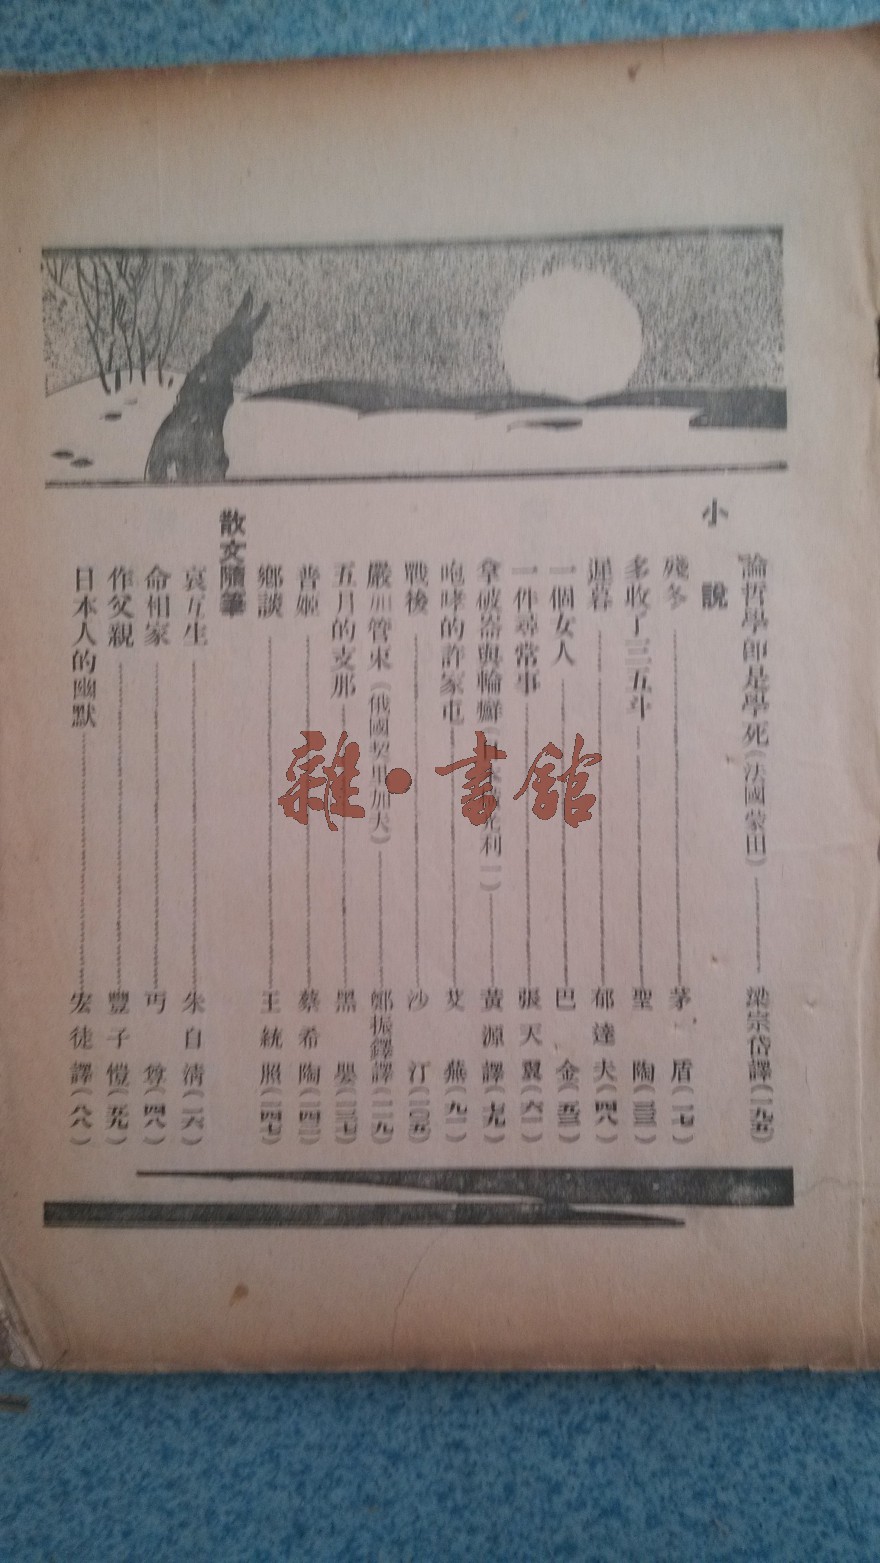 論哲學即是學死(法國蒙田) 梁宗岱譯(一九五)
小說
殘冬 茅盾(一七)
多收了三五斗 聖陶(三三)
遲暮 郁達夫(四八)
一個女人 巴金(五三)
一件尋常事 張天翼(六一)
拿破崙與輪癬(日本橫光利一) 黃源譯(七九)
咆哮的許家屯 艾蕪(九一)
戰後 沙汀(一〇五)
嚴加管束(俄國契里加夫) 鄭振鐸譯(一一九)
五月的支那 黑嬰(一三七)
普姬 蔡希陶(一四二)
鄉談 王統照(一四七)
散文隨筆
哀互生 朱自清(一六)
命相家 丏尊(四八)
作父親 豐子愷(五九)
日本人的幽默 宏徒譯(八八)
雜·書館